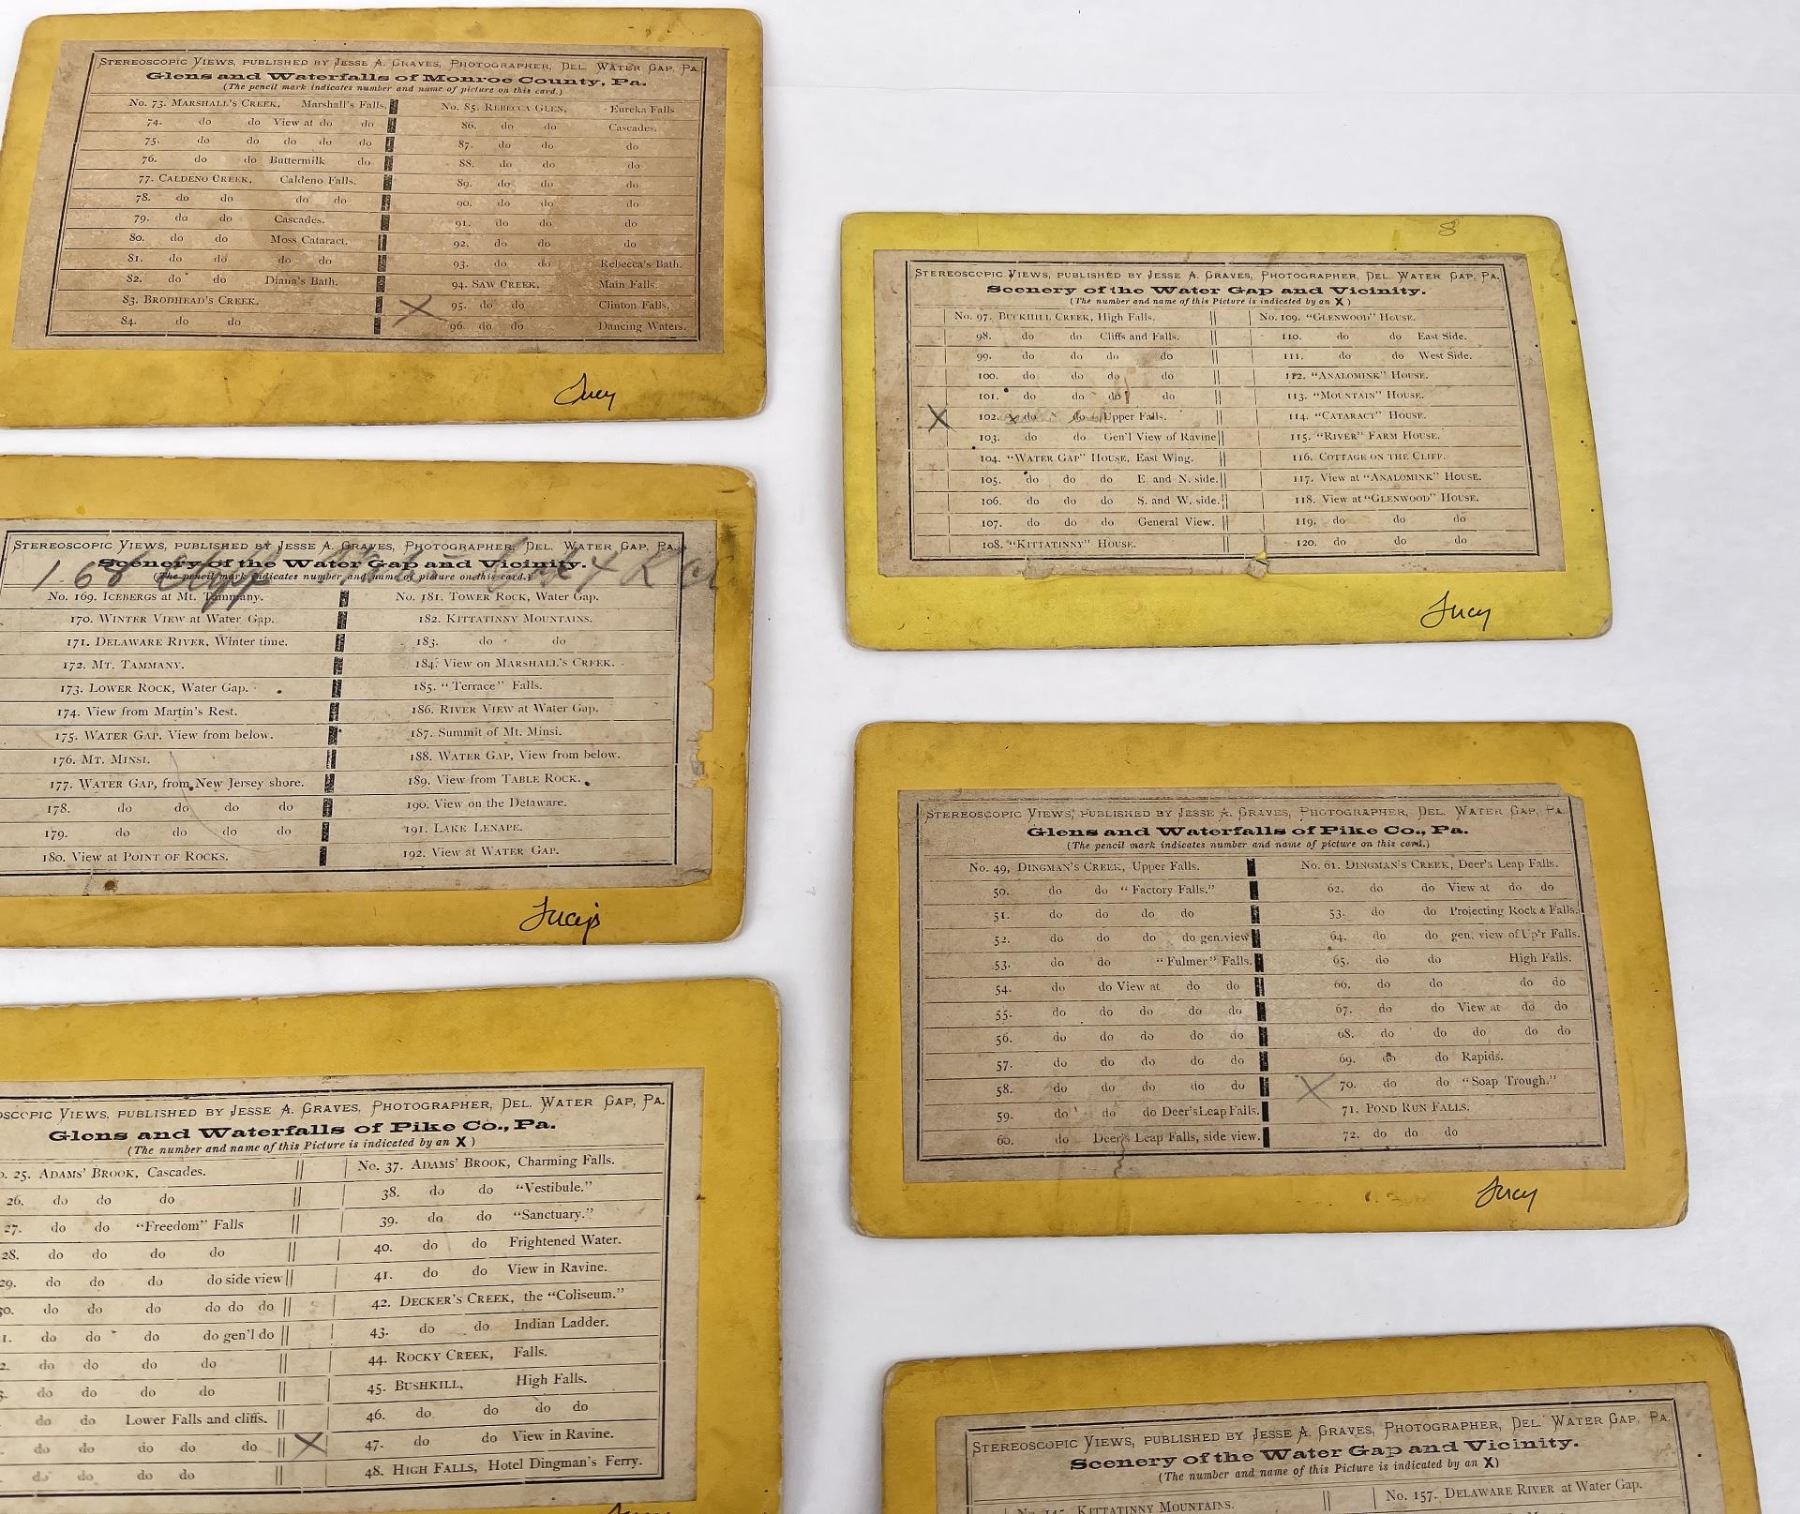 STEREOSCOPIC VIEWS, PUBLISHED BY JESSE A. GRAVES, PHOTOGRAPHER, DEL. WATER GAP, PA.
Glens and Waterfalls of Monroe County, Pa.
(The pencil mark indicates number and name of picture on this card.)
No. 73. MARSHALL'S CREEK, Marshall's Falls.
74. do do View at do do
75. do do do do do
76. do do Buttermilk do
77. CALDENO CREEK, Caldeno Falls.
78. do do do do
79. do do Cascades.
80. do do Moss Cataract.
81. do do do do
82. do do Diana's Bath.
83. BRODHEAD'S CREEK.
84. do do
No. 85. REBECCA GLEN, Eureka Falls
86. do do Cascades.
87. do do do
88. do do do
89. do do do
90. do do do
91. do do do
92. do do do
93. do do Rebecca's Bath.
94. SAW CREEK, Main Falls.
X 95. do do Clinton Falls.
96. do do Dancing Waters.
Lucy
STEREOSCOPIC VIEWS, PUBLISHED BY JESSE A. GRAVES, PHOTOGRAPHER, DEL. WATER GAP, PA.
Scenery of the Water Gap and Vicinity.
(The pencil mark indicates number and name of picture on this card.)
168
No. 169. ICEBERGS at Mt. Tammany.
170. WINTER VIEW at Water Gap.
171. DELAWARE RIVER, Winter time.
172. MT. TAMMANY.
173. LOWER ROCK, Water Gap.
174. View from Martin's Rest.
175. WATER GAP. View from below.
176. MT. MINSI.
177. WATER GAP, from New Jersey shore.
178. do do do do
179. do do do do
180. View at POINT OF ROCKS.
No. 181. TOWER ROCK, Water Gap.
182. KITTATINNY MOUNTAINS.
183. do do
184. View on MARSHALL'S CREEK.
185. "Terrace" Falls.
186. RIVER VIEW at Water Gap.
187. Summit of Mt. Minsi.
188. WATER GAP, View from below.
189. View from TABLE ROCK.
190. View on the Delaware.
191. LAKE LENAPE.
192. View at WATER GAP.
Lucy's
SCOPIC VIEWS, PUBLISHED BY JESSE A. GRAVES, PHOTOGRAPHER, DEL. WATER GAP, PA.
Glens and Waterfalls of Pike Co., Pa.
(The number and name of this Picture is indiceted by an X)
o. 25. ADAMS' BROOK, Cascades.
26. do do do
27. do do "Freedom" Falls
28. do do do do
29. do do do do side view
30. do do do do do do
1. do do do do gen'l do
2. do do do do
do do do do
do do Lower Falls and cliffs.
do do do do do
do do do do
No. 37. ADAMS' BROOK, Charming Falls.
38. do do "Vestibule."
39. do do "Sanctuary."
40. do do Frightened Water.
41. do do View in Ravine.
42. DECKER'S CREEK, the "Coliseum."
43. do do Indian Ladder.
44. ROCKY CREEK, Falls.
45. BUSHKILL, High Falls.
46. do do do do
X 47. do do View in Ravine.
48. HIGH FALLS, Hotel Dingman's Ferry.
8
STEREOSCOPIC VIEWS, PUBLISHED BY JESSE A. GRAVES, PHOTOGRAPHER, DEL. WATER GAP, PA.
Scenery of the Water Gap and Vicinity.
(The number and name of this Picture is indicated by an X)
No. 97. BUCKHILL CREEK, High Falls.
98. do do Cliffs and Falls.
99. do do do do
100. do do do do
101. do do do do
X 102. do do Upper Falls.
103. do do Gen'l View of Ravine
104. "WATER GAP" HOUSE, East Wing.
105. do do do E. and N. side.
106. do do do S. and W. side.
107. do do do General View.
108. "KITTATINNY" HOUSE.
No. 109. "GLENWOOD" HOUSE.
110. do do East Side.
111. do do West Side.
112. "ANALOMINK" HOUSE.
113. "MOUNTAIN" HOUSE.
114. "CATARACT" HOUSE.
115. "RIVER" FARM HOUSE.
116. COTTAGE ON THE CLIFF.
117. View at "ANALOMINK" HOUSE.
118. View at "GLENWOOD" HOUSE.
119. do do do
120. do do do
Lucy
STEREOSCOPIC VIEWS, PUBLISHED BY JESSE A. GRAVES, PHOTOGRAPHER, DEL. WATER GAP, PA.
Glens and Waterfalls of Pike Co., Pa.
(The pencil mark indicates number and name of picture on this card.)
No. 49, DINGMAN'S CREEK, Upper Falls.
50. do do "Factory Falls."
51. do do do do
52. do do do do gen. view
53. do do "Fulmer" Falls.
54. do do View at do do
55. do do do do do
56. do do do do do
57. do do do do do
58. do do do do do
59. do do do Deer's Leap Falls.
60. do Deer's Leap Falls, side view.
No. 61. DINGMAN'S CREEK, Deer's Leap Falls.
62. do do View at do do
53. do do Projecting Rock & Falls.
64. do do gen. view of Up'r Falls.
65. do do High Falls.
66. do do do do
67. do do View at do do
68. do do do do do
69. do do Rapids.
X 70. do do "Soap Trough."
71. POND RUN FALLS.
72. do do do
Lucy
STEREOSCOPIC VIEWS, PUBLISHED BY JESSE A. GRAVES, PHOTOGRAPHER, DEL. WATER GAP, PA.
Scenery of the Water Gap and Vicinity.
(The number and name of this Picture is indicated by an X)
No. 145. KITTATINNY MOUNTAINS.
No. 157. DELAWARE RIVER at Water Gap.